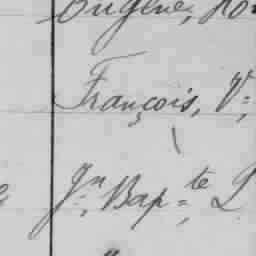 Eugène,
François, V:
Jn Bap:te L